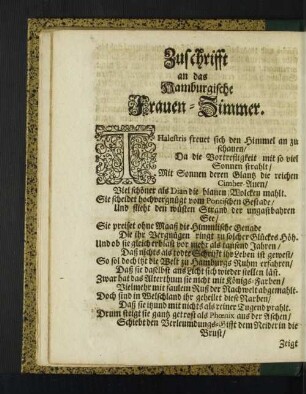 Zuschrifft
an das
Hamburgische
Frauen-Zimmer.
THalestris freuet sich den Himmel an zu
schauen/
Da die Vortrefligkeit mit so viel
Sonnen strahlt/
Mit Sonnen deren Glantz die reichen
Cimber-Auen/
Viel schöner als Dian die blauen Wolcken mahlt.
Sie scheidet hochvergnügt vom Pontischen Gestade/
Und flieht den wüsten Strand der ungastbahren
See/
Sie preiset ohne Maaß die Himmlische Genade
Die ihr Vergnügen bringt zu solcher Glückes Höh.
Und ob sie gleich erblaßt vor mehr als tausend Jahren/
Daß nichts als todte Schrifft ihr Leben ist gewest/
So sol doch itzt die Welt zu Hamburgs Ruhm erfahren/
Daß sie daselbst ans Licht sich wieder stellen läst.
Zwar hat das Alterthum sie nicht mit Königs-Farben/
Vielmehr mit faulem Ruß der Nachwelt abgemahlt.
Doch sind in Welschland ihr geheilet diese Narben/
Daß sie itzund mit nichts als reiner Tugend prahlt.
Drum steigt sie gantz getrost als Phœnix aus der Aschen/
Schiebt den Verleumdungs-Gifft dem Neider in die
Brust/
Zeigt